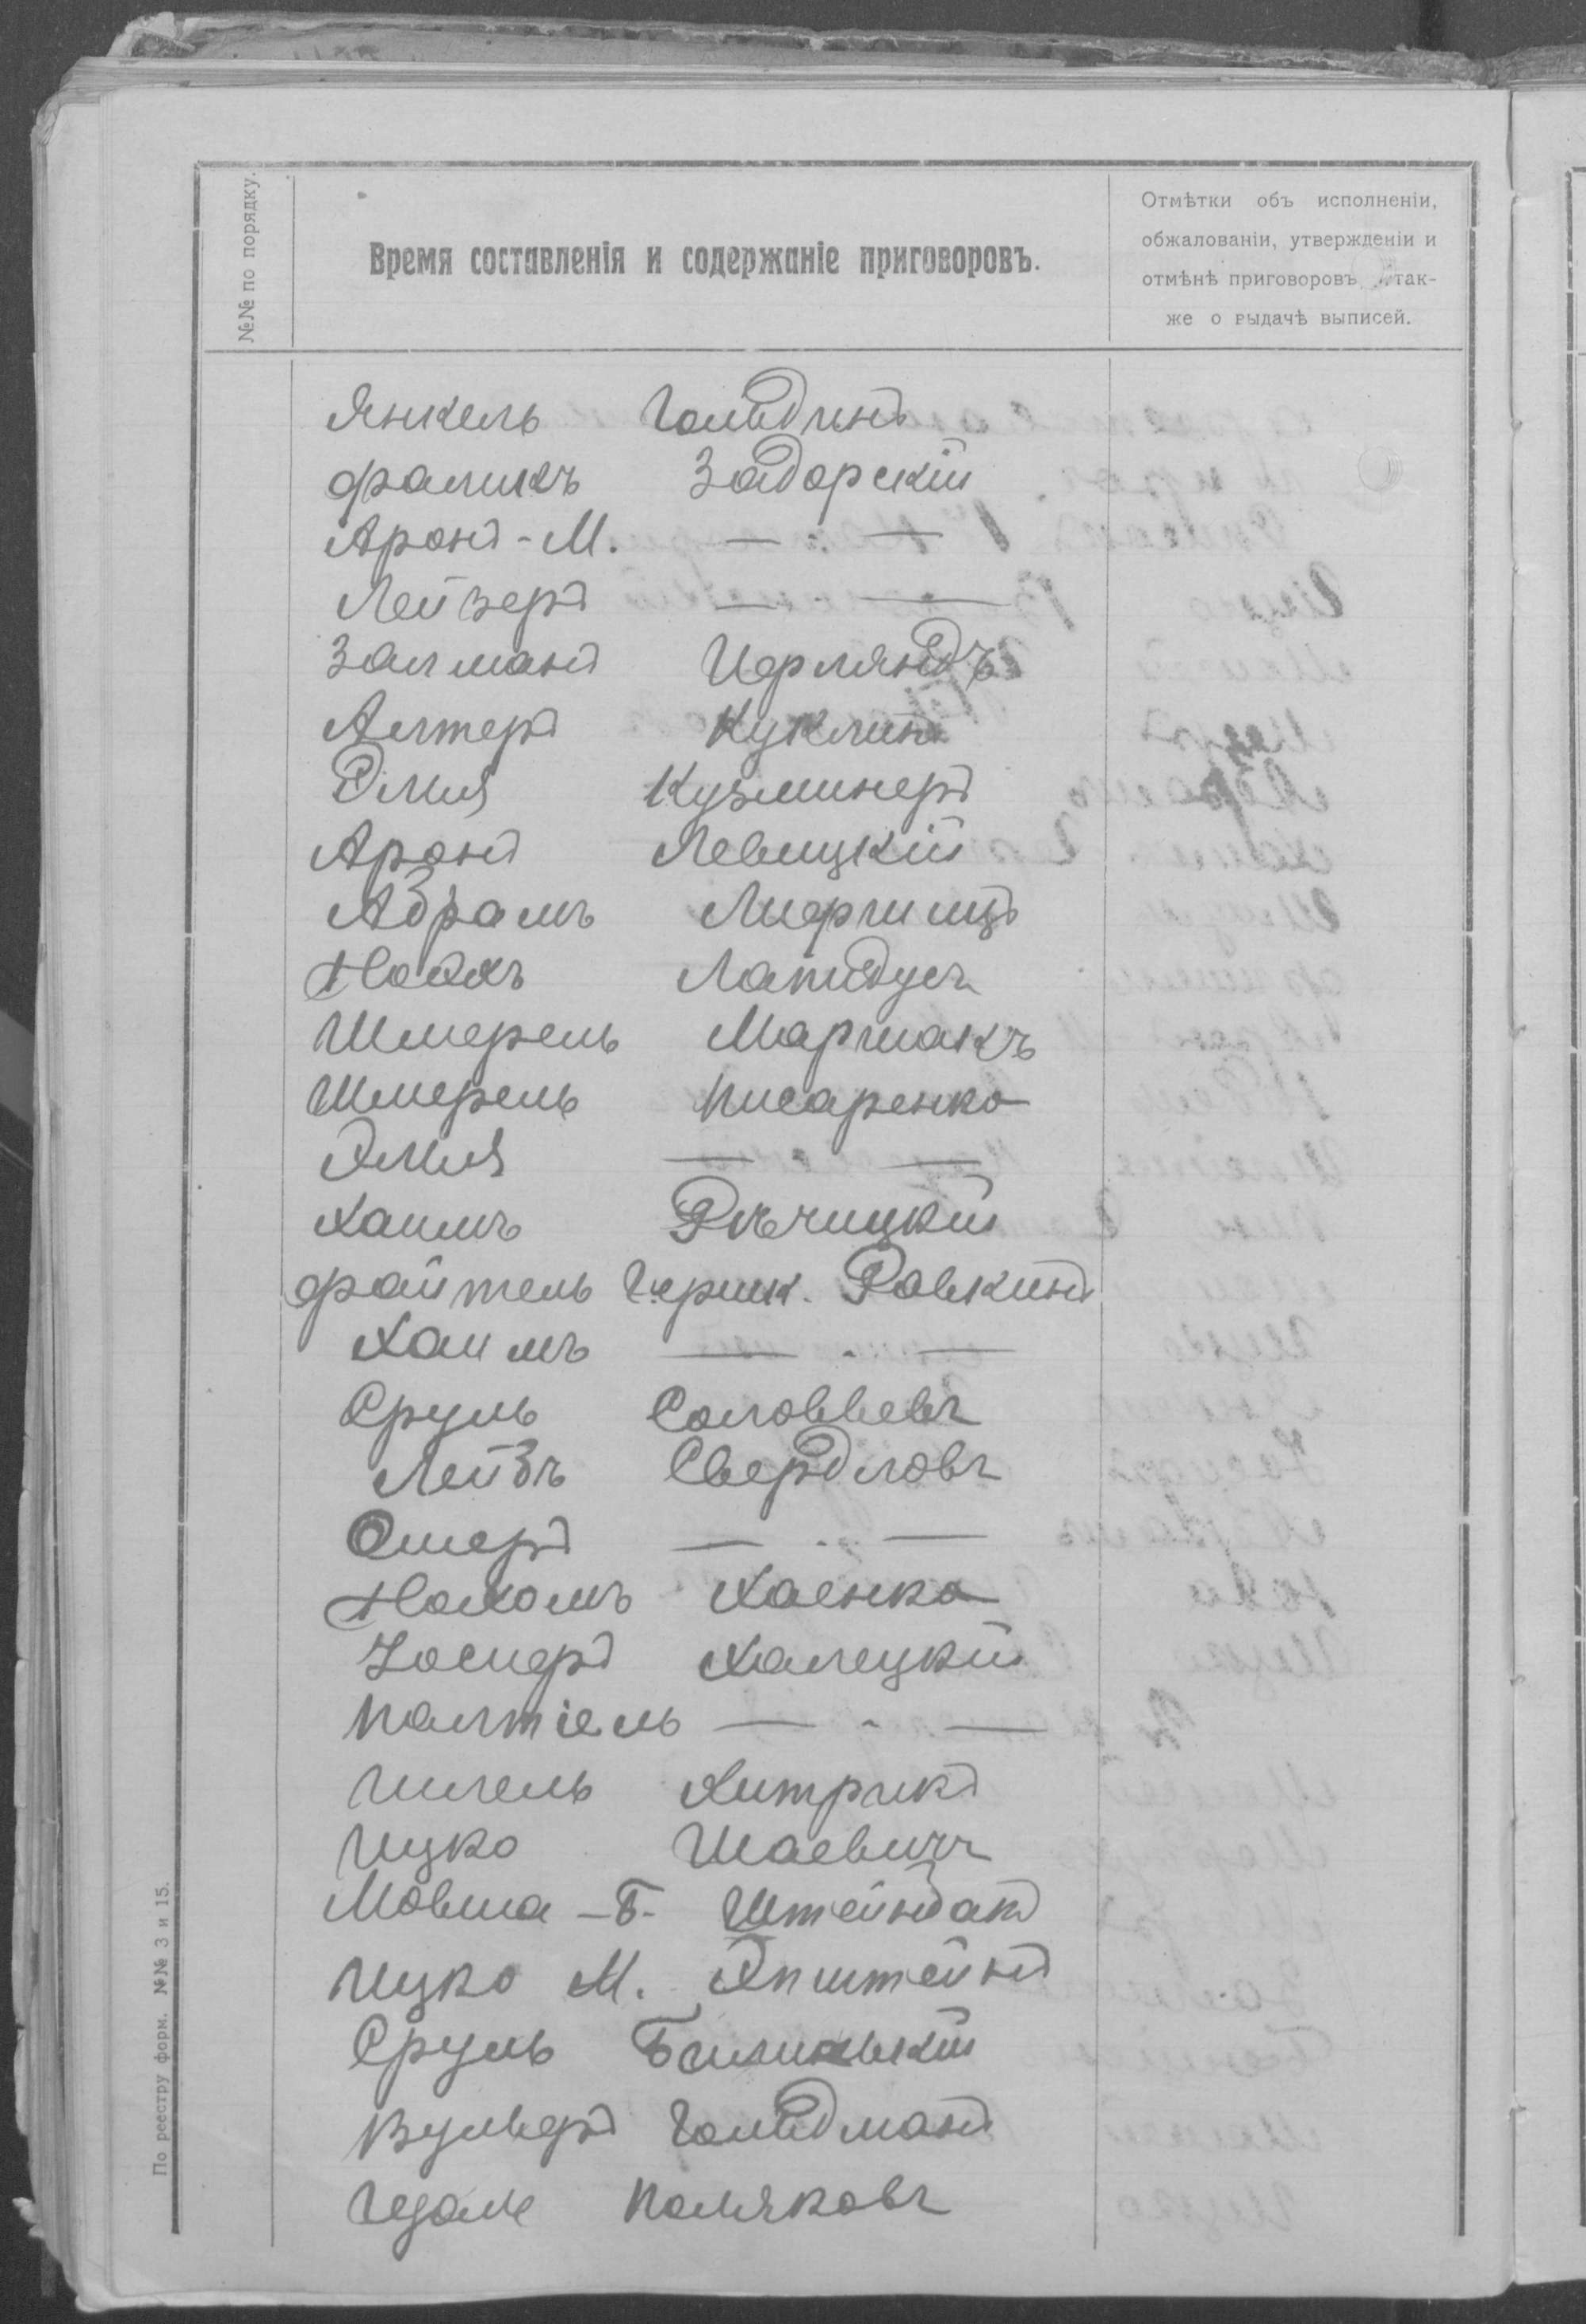 №№ по порядку.
Время составленія и содержаніе приговоровъ.
Отмѣтки объ исполненіи,
обжалованіи, утвержденіи и
отмѣнѣ приговоровъ так-
же о выдачѣ выписей.
Янкель Гольдинъ
Фаликъ Задорскій
Аронъ-М. — " —
Лейзеръ — " —
Залманъ Иерляндъ
Алтеръ Куклинъ
Элия Кузминеръ
Аронъ Левицкій
Абрамъ Лифшицъ
Ноахъ Лапидусъ
Шмерель Маршакъ
Шмерель Писаренко
Элия — " —
Хаимъ Рѣчицкій
Файтель Гершк. Равкинъ
Хаимъ — " —
Сруль Соловьевъ
Лейбъ Свердловъ
Ошеръ — " —
Нахомъ Хаенко
Палтіель — " —
Хитрикъ
Ицко Шаевичъ
Мовша-Б. Штейнбакъ
Ицко М. Эпштейнъ
Сруль
Вульфъ Гольдманъ
Поляковъ
По реестру форм. №№ 3 и 15.